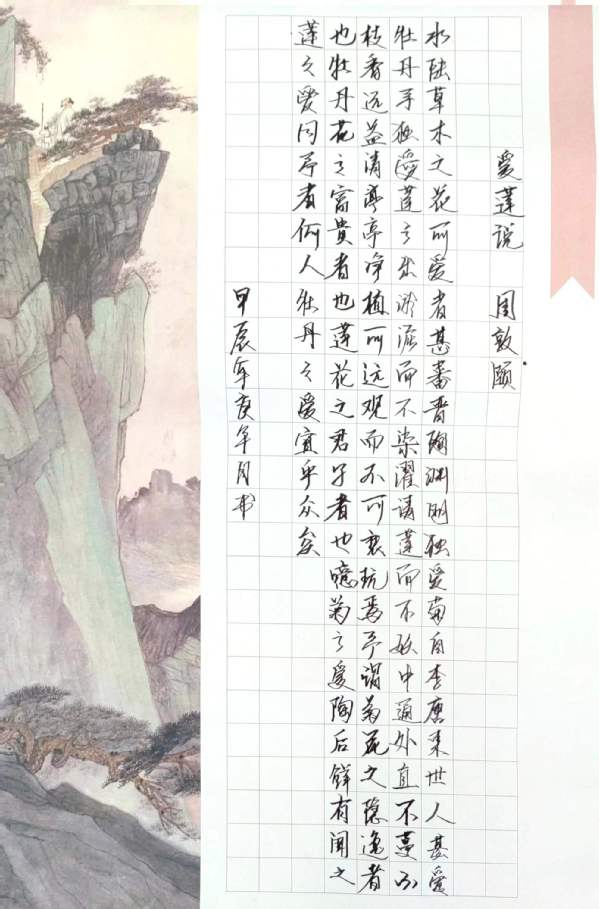 爱莲说 周敦颐
水陆草木之花可爱者甚蕃晋陶渊明独爱菊自李唐来世人甚爱
牡丹予独爱莲之出淤泥而不染濯清莲而不妖中通外直不蔓不
枝香远益清亭亭净植可远观而不可亵玩焉予谓菊花之隐逸者
也牡丹花之富貴者也莲花之君子者也噫菊之爱陶后鲜有闻之
莲之爱同予者何人牡丹之爱宜乎众矣
甲辰年庚午月书